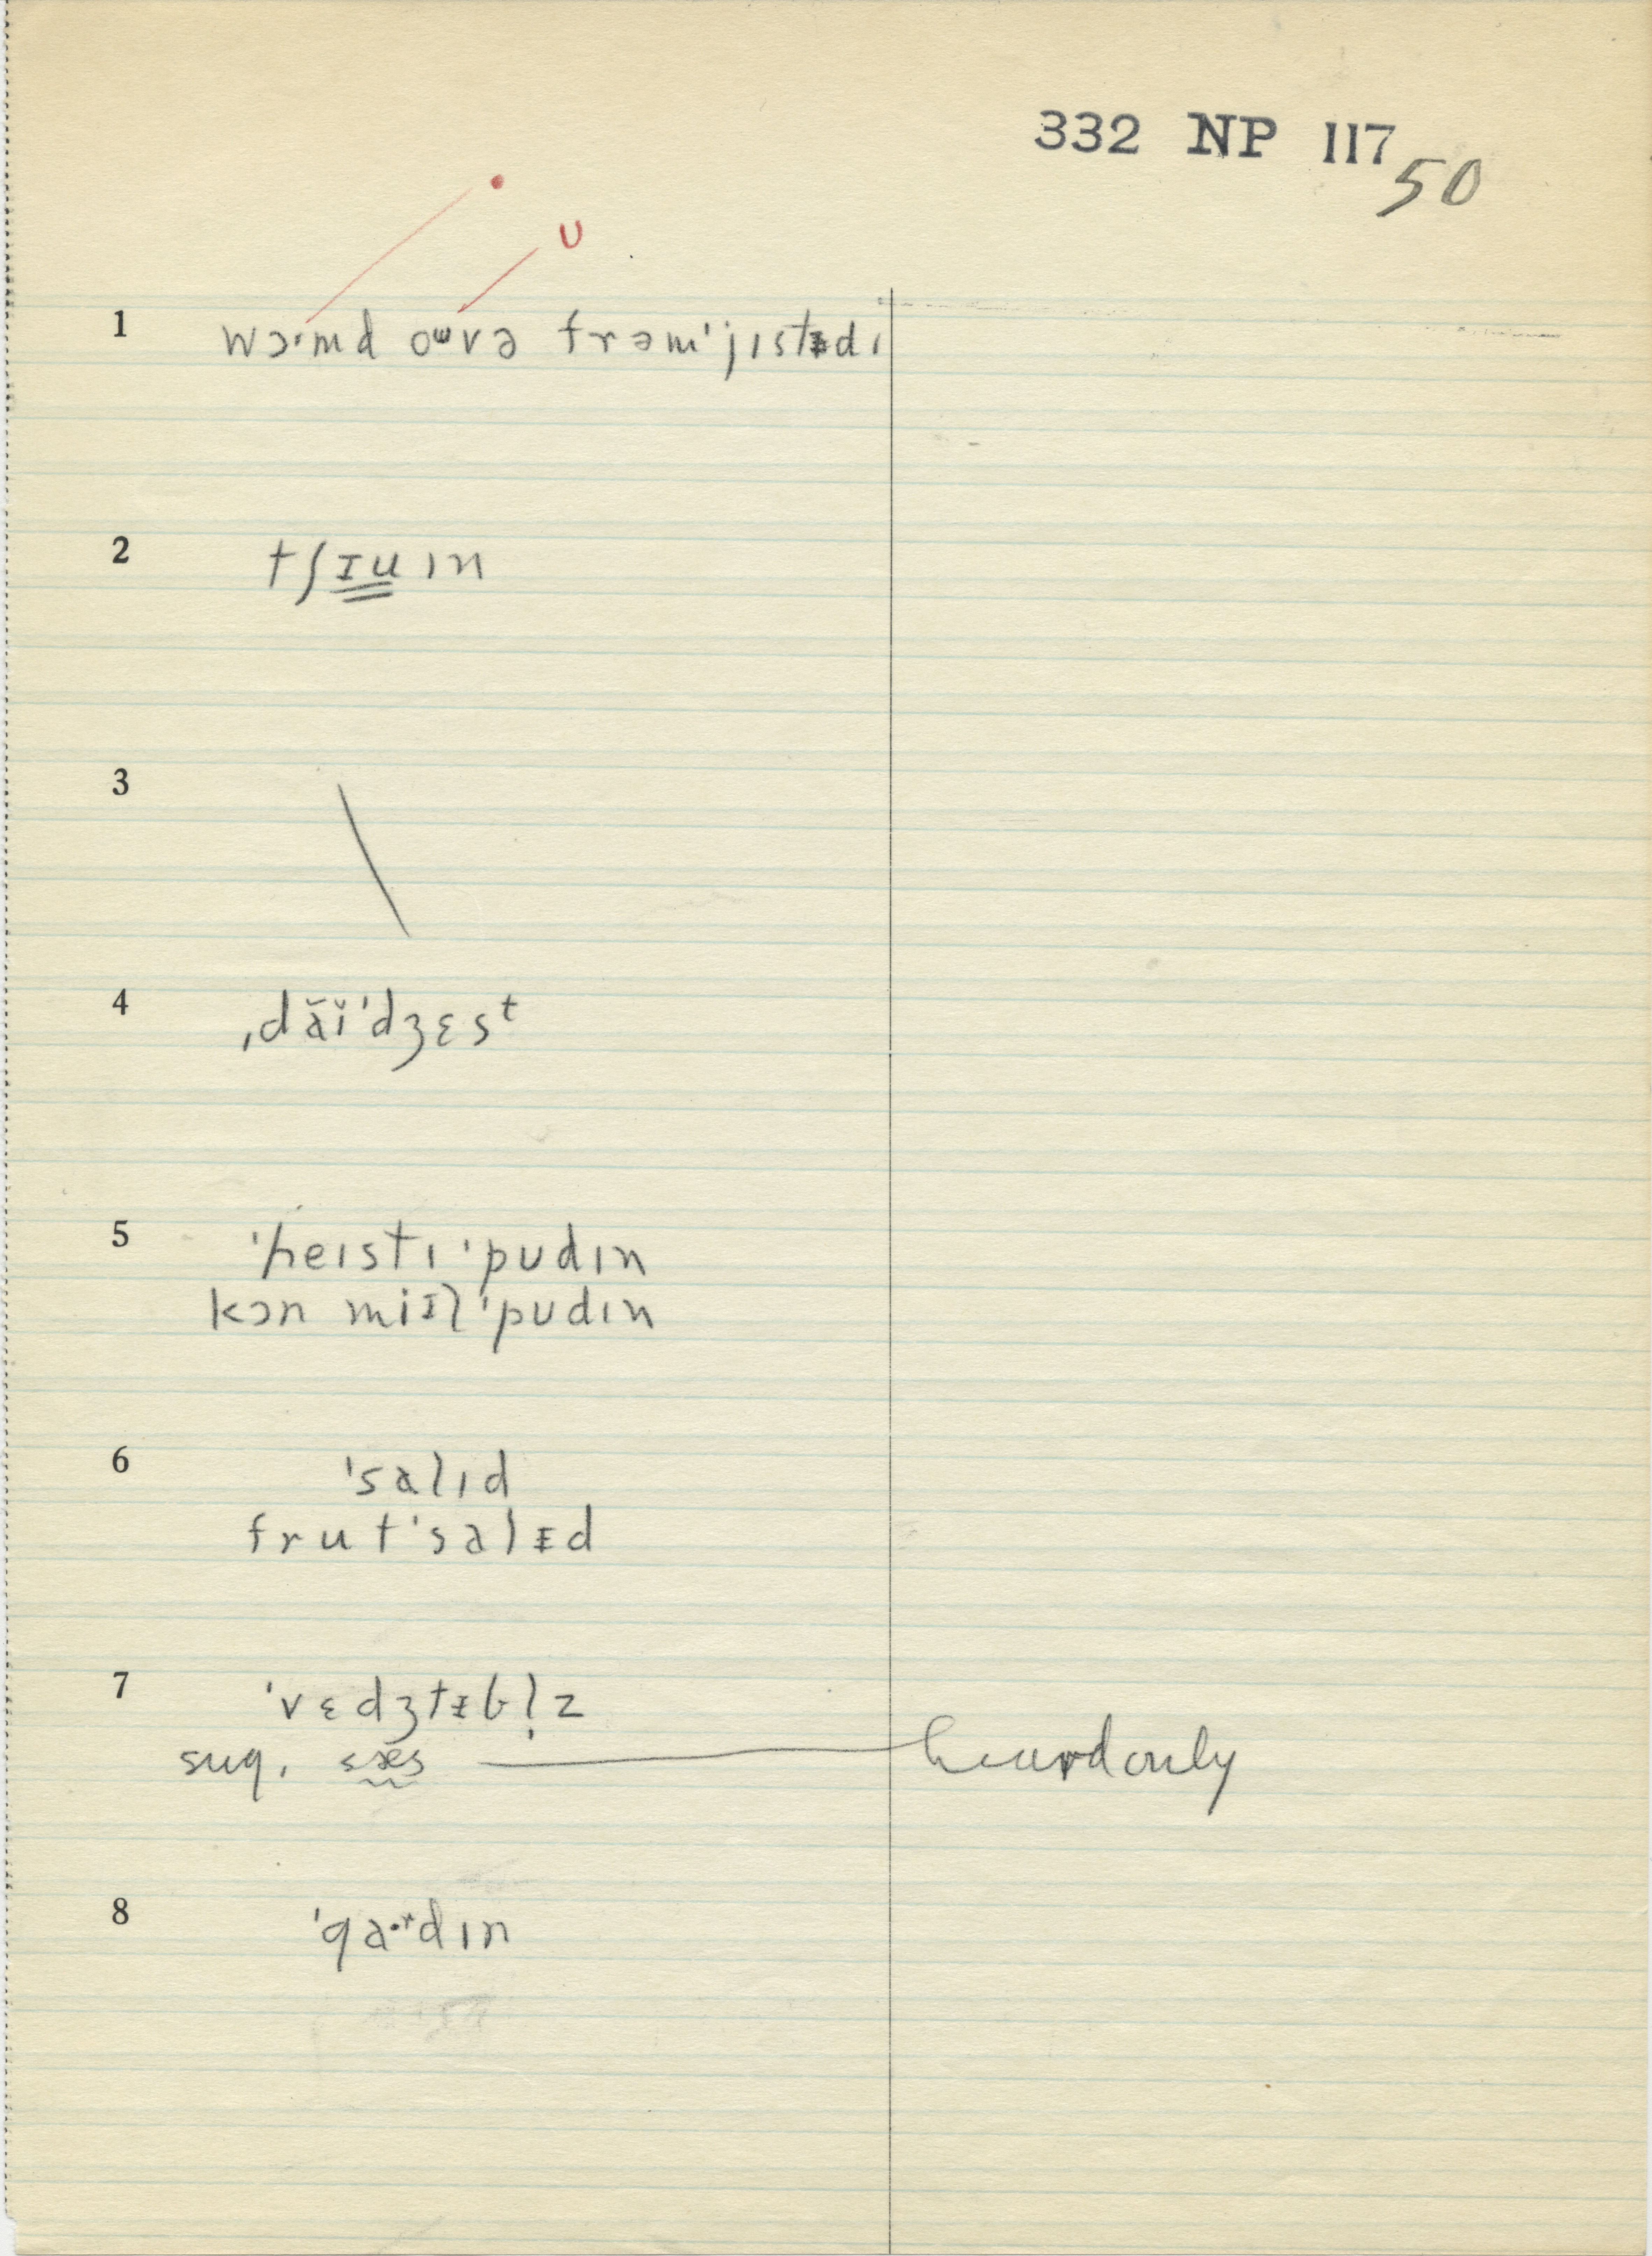 332 NP 117
50
•
U
1 wɔ·md oᵚvə frəm'jɪstᵻdɪ
2 tʃɪuɪn
3
4 ˌdăĭ'dʒɛsᵗ
5 'heɪstɪ 'pudɪn
kɔn miɪl 'pudɪn
6 'salɪd
frut'salᵻd
7 'vɛdʒtᵻbl̩z
sug. sæs heard only
8 'ga·ʳdɪn